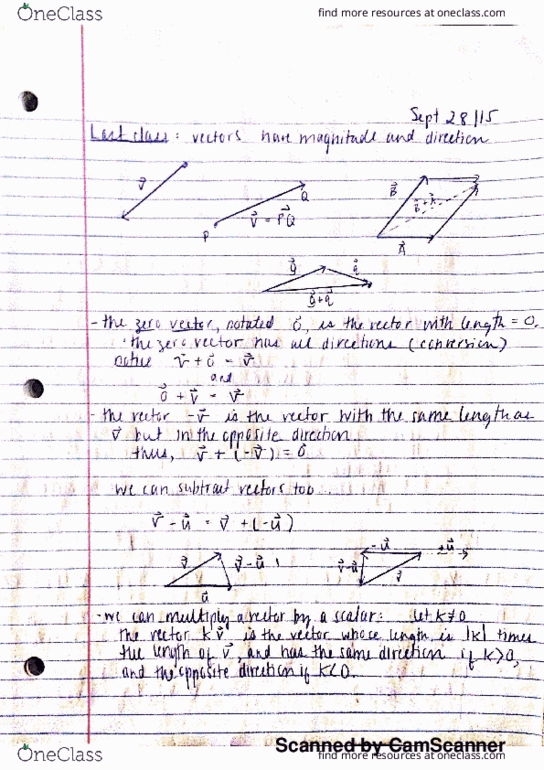 OneClass
find more resources at oneclass.com
Sept 28/15
Last class: vectors have magnitude and direction
v⃗
P
Q
v⃗ = PQ⃗
B⃗
B⃗ + A⃗
A⃗
- the zero vector, notated 0⃗, is the vector with length = 0.
· the zero vector has all directions (conversion)
notice v⃗ + 0⃗ = v⃗
and
0⃗ + v⃗ = v⃗
- the vector -v⃗ is the vector with the same length as
v⃗ but in the opposite direction.
thus, v⃗ + (-v⃗) = 0⃗
we can subtract vectors too...
v⃗ - u⃗ = v⃗ + (-u⃗)
v⃗
v⃗ - u⃗
u⃗
-u⃗
v⃗ - u⃗
v⃗
- we can multiply a vector by a scalar: let k ≠ 0
the vector kv⃗ is the vector whose length is |k| times
the length of v⃗ and has the same direction if k>0,
and the opposite direction if k<0.
Scanned by CamScanner
OneClass
find more resources at oneclass.com